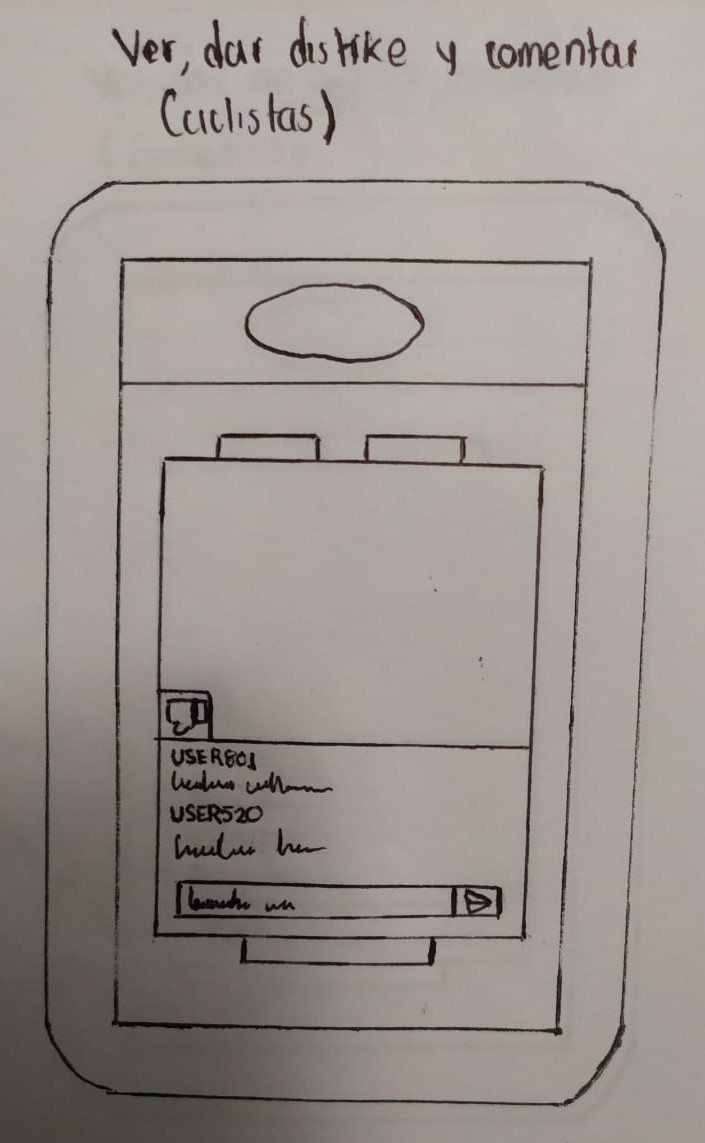 Ver, dar dislike y comentar
(ciclistas)
USER801
USER520